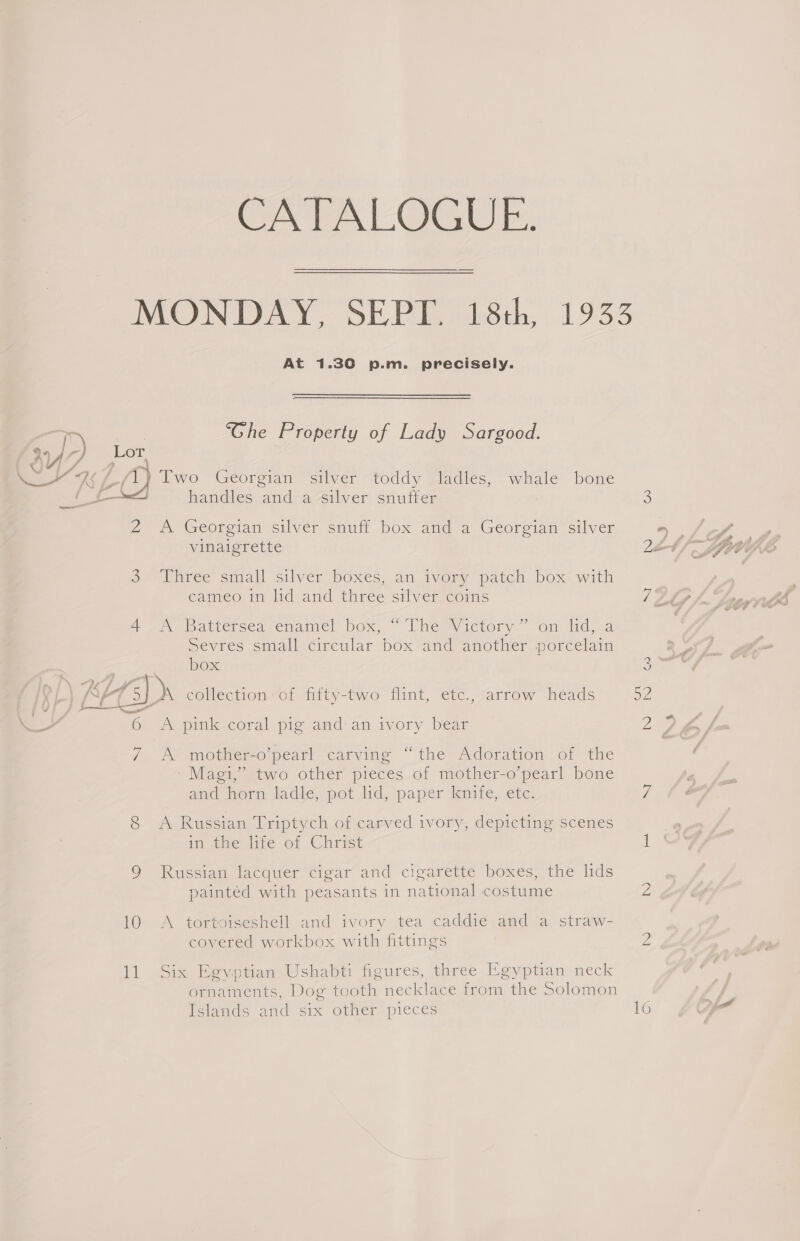 CATALOGUE.
MONDAY, SEPT. 18th, 1933
At 1.30 p.m. precisely.
The Property of Lady Sargood.
Lot
1 Two Georgian silver toddy ladles, whale bone
handles and a silver snuffer 3
2 A Georgian silver snuff box and a Georgian silver
vinaigrette 2
3 Three small silver boxes, an ivory patch box with
cameo in lid and three silver coins 7
4 A Battersea enamel box, “ The Victory ” on lid, a
Sevres small circular box and another porcelain
box 3
5 A collection of fifty-two flint, etc., arrow heads 52
6 A pink coral pig and an ivory bear 2
7 A mother-o’pearl carving “ the Adoration of the
Magi,” two other pieces of mother-o’pearl bone
and horn ladle, pot lid, paper knife, etc. 7
8 A Russian Triptych of carved ivory, depicting scenes
in the life of Christ 1
9 Russian lacquer cigar and cigarette boxes, the lids
painted with peasants in national costume 2
10 A tortoiseshell and ivory tea caddie and a straw-
covered workbox with fittings 2
11 Six Egyptian Ushabti figures, three Egyptian neck
ornaments, Dog tooth necklace from the Solomon
Islands and six other pieces 16